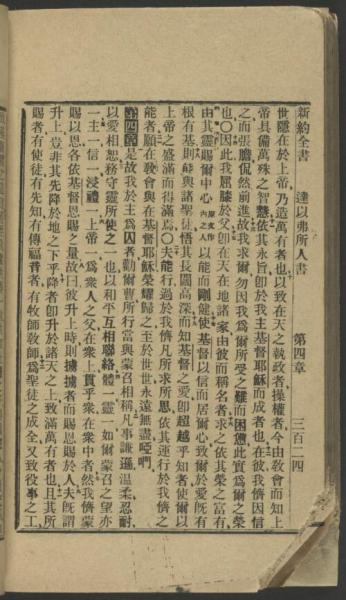 新約全書　達以弗所人書　第四章　三百二四
世隱在於上帝乃造萬有者也以致在天之執政者操權者今由敎會而知上
帝具備萬殊之智慧依其永旨卽於我主基督耶穌而成者也在彼我儕因信
之而張膽侃然前進故我求爾勿因我爲爾所受之難而困憊此實爲爾之榮
也〇因此我屈膝於父卽在天在地諸家由彼而稱名者求之依其榮之富有
由其靈賜爾中心原文作內之人以能而剛健使基督以信而居爾心致爾於愛旣有
根有基則能與諸聖徒悟其長闊高深而知基督之愛卽超越乎知者使爾以
上帝之盛滿而得滿焉〇夫能行過於我儕凡所求所思依其運行於我儕之
能者願在敎會與在基督耶穌榮耀歸之至於世世永遠無盡啞們
第四章　是故我於主爲囚者勸爾曹所行當與蒙召相稱凡事謙遜溫柔忍耐
以愛相恕務守靈所使之一也以和平互相聯絡體一靈一如爾蒙召之望亦
一主一信一浸禮一上帝一爲衆人之父在衆上貫乎衆在衆中者然我儕蒙
賜以恩各依基督恩賜之量故曰彼升上時則擄擄者而賜恩賜於人夫旣謂
升上豈非其先降於地之下乎降者卽升於諸天之上致滿萬有者也且其所
賜者有使徒有先知有傳福音者有牧師敎師爲聖徒之成全又致役事之工